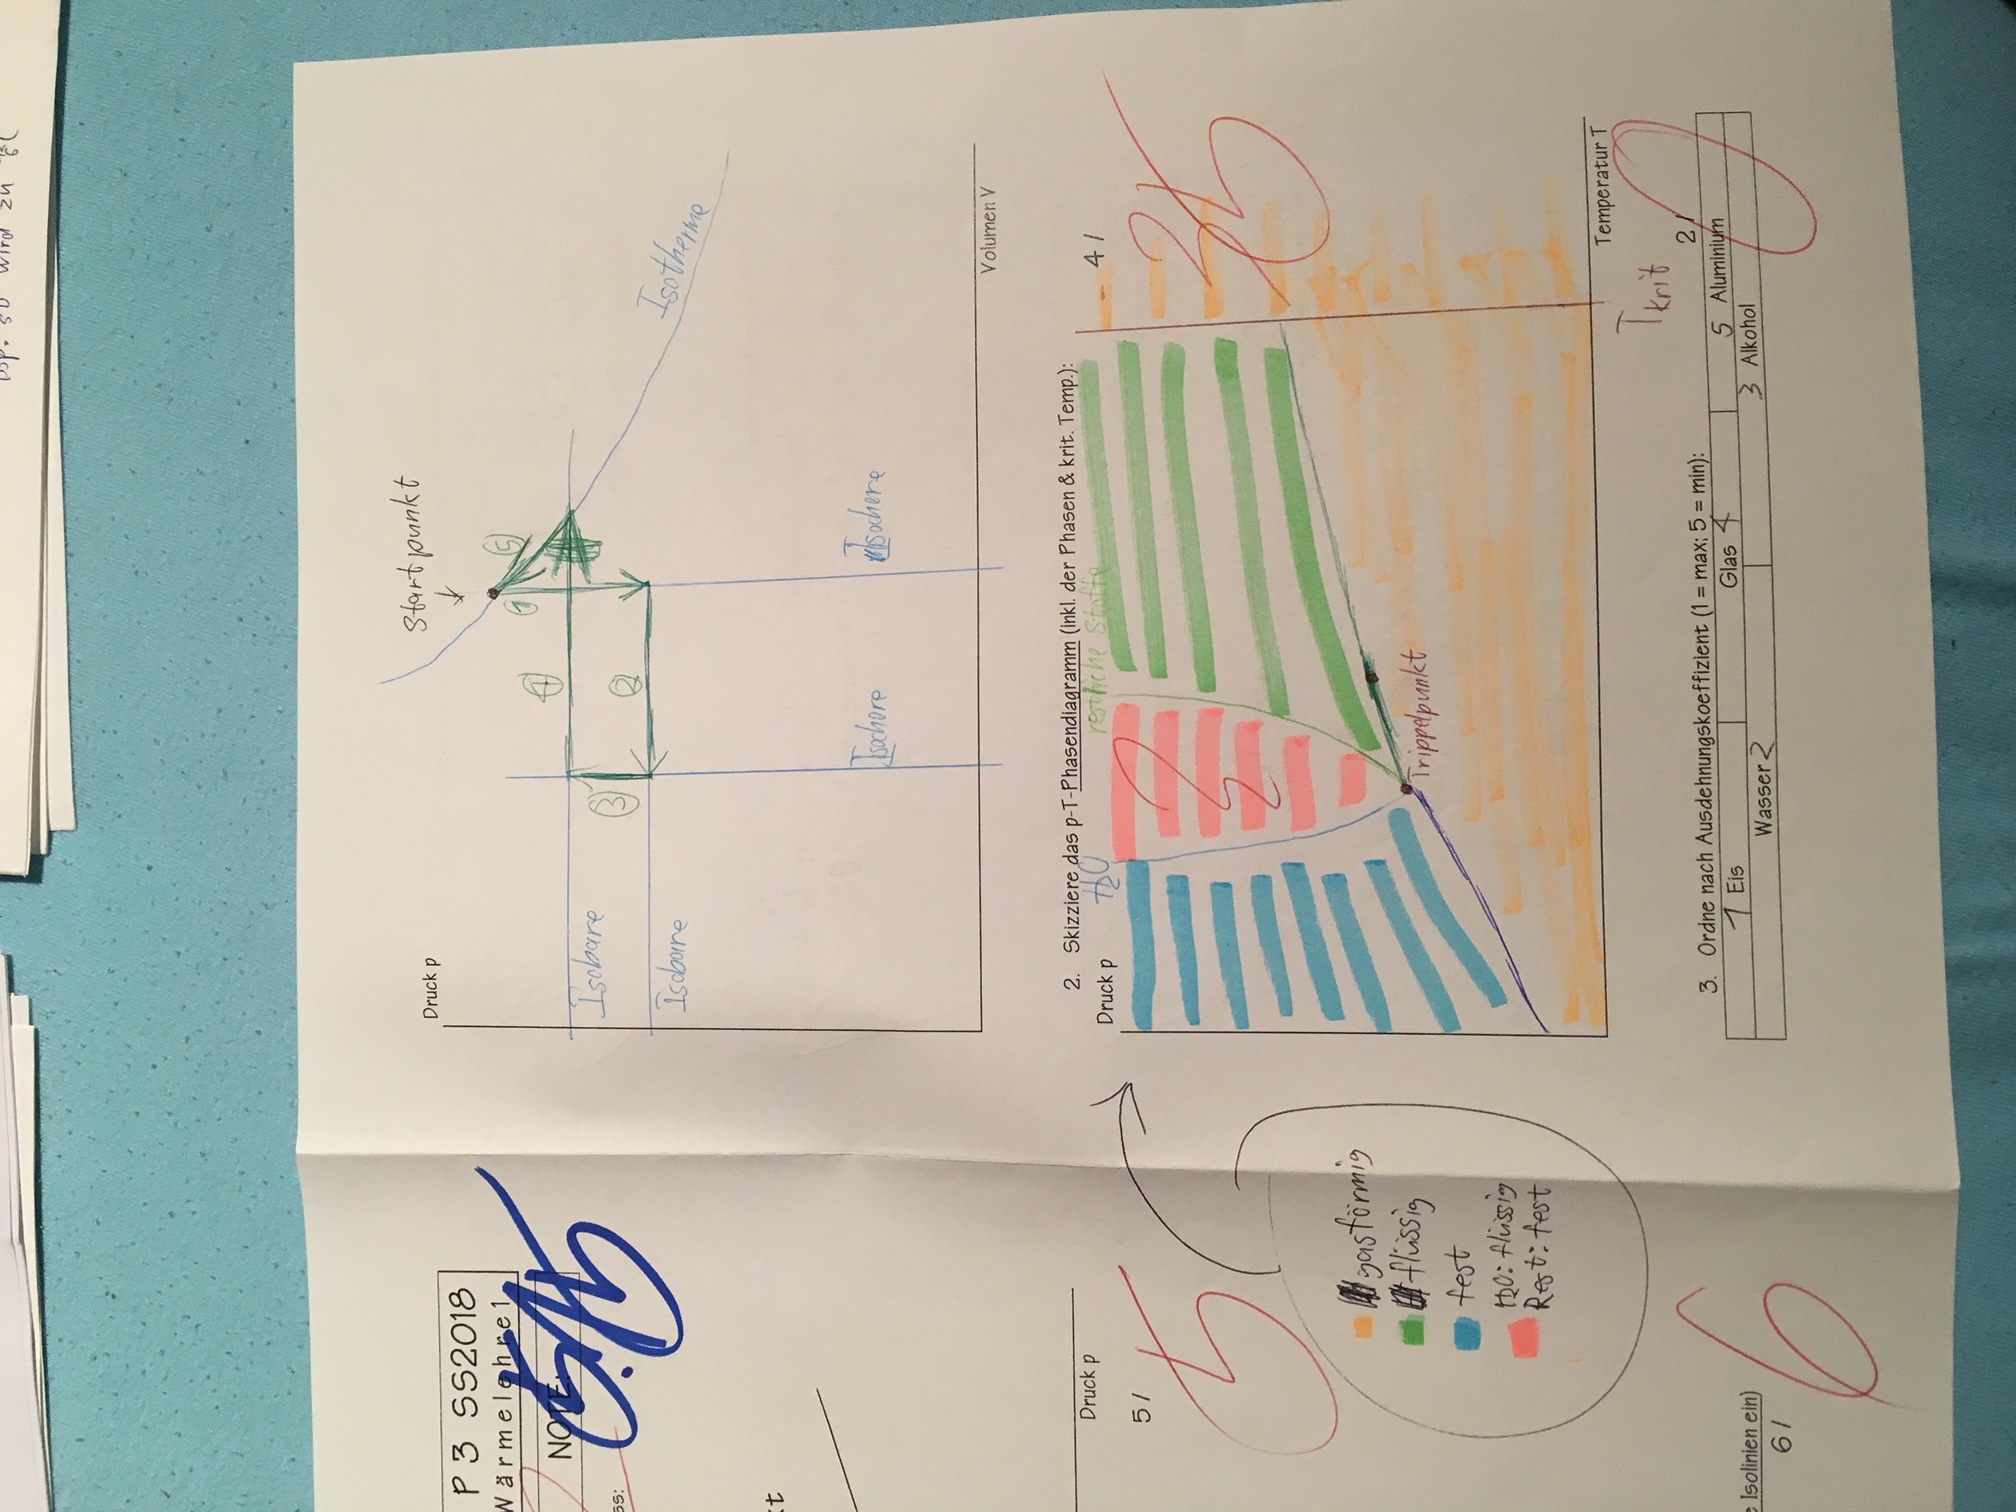 wird zu
P 3 SS2018
Wärmelehre1
NOTE:
5.15
ss:
kt
Druck p
5 /
5
gasförmig
flüssig
fest
H2O: flüssig
Rest: fest
e Isolinien ein)
6 /
6
Druck p
Startpunkt
1
5
4
Isobare
3
2
Isobare
Isotherme
Isochore
Isochore
Volumen V
2. Skizziere das p-T-Phasendiagramm (inkl. der Phasen & krit. Temp.):
Druck p
H2O
restliche Stoffe
4 /
3,5
Trippelpunkt
Temperatur T
Tkrit
3. Ordne nach Ausdehnungskoeffizient (1 = max; 5 = min):
2 /
0
1 Eis
Glas 4
5 Aluminium
Wasser 2
3 Alkohol